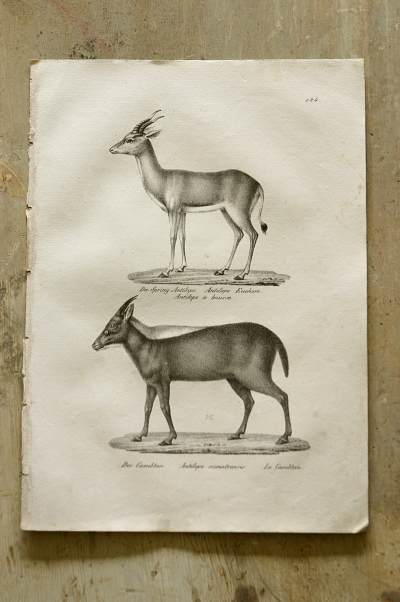 Die Spring Antilope Antilope Euchore
Antilope à bourse
Der Cambtan Antilope sumatrensis Le Cambtan